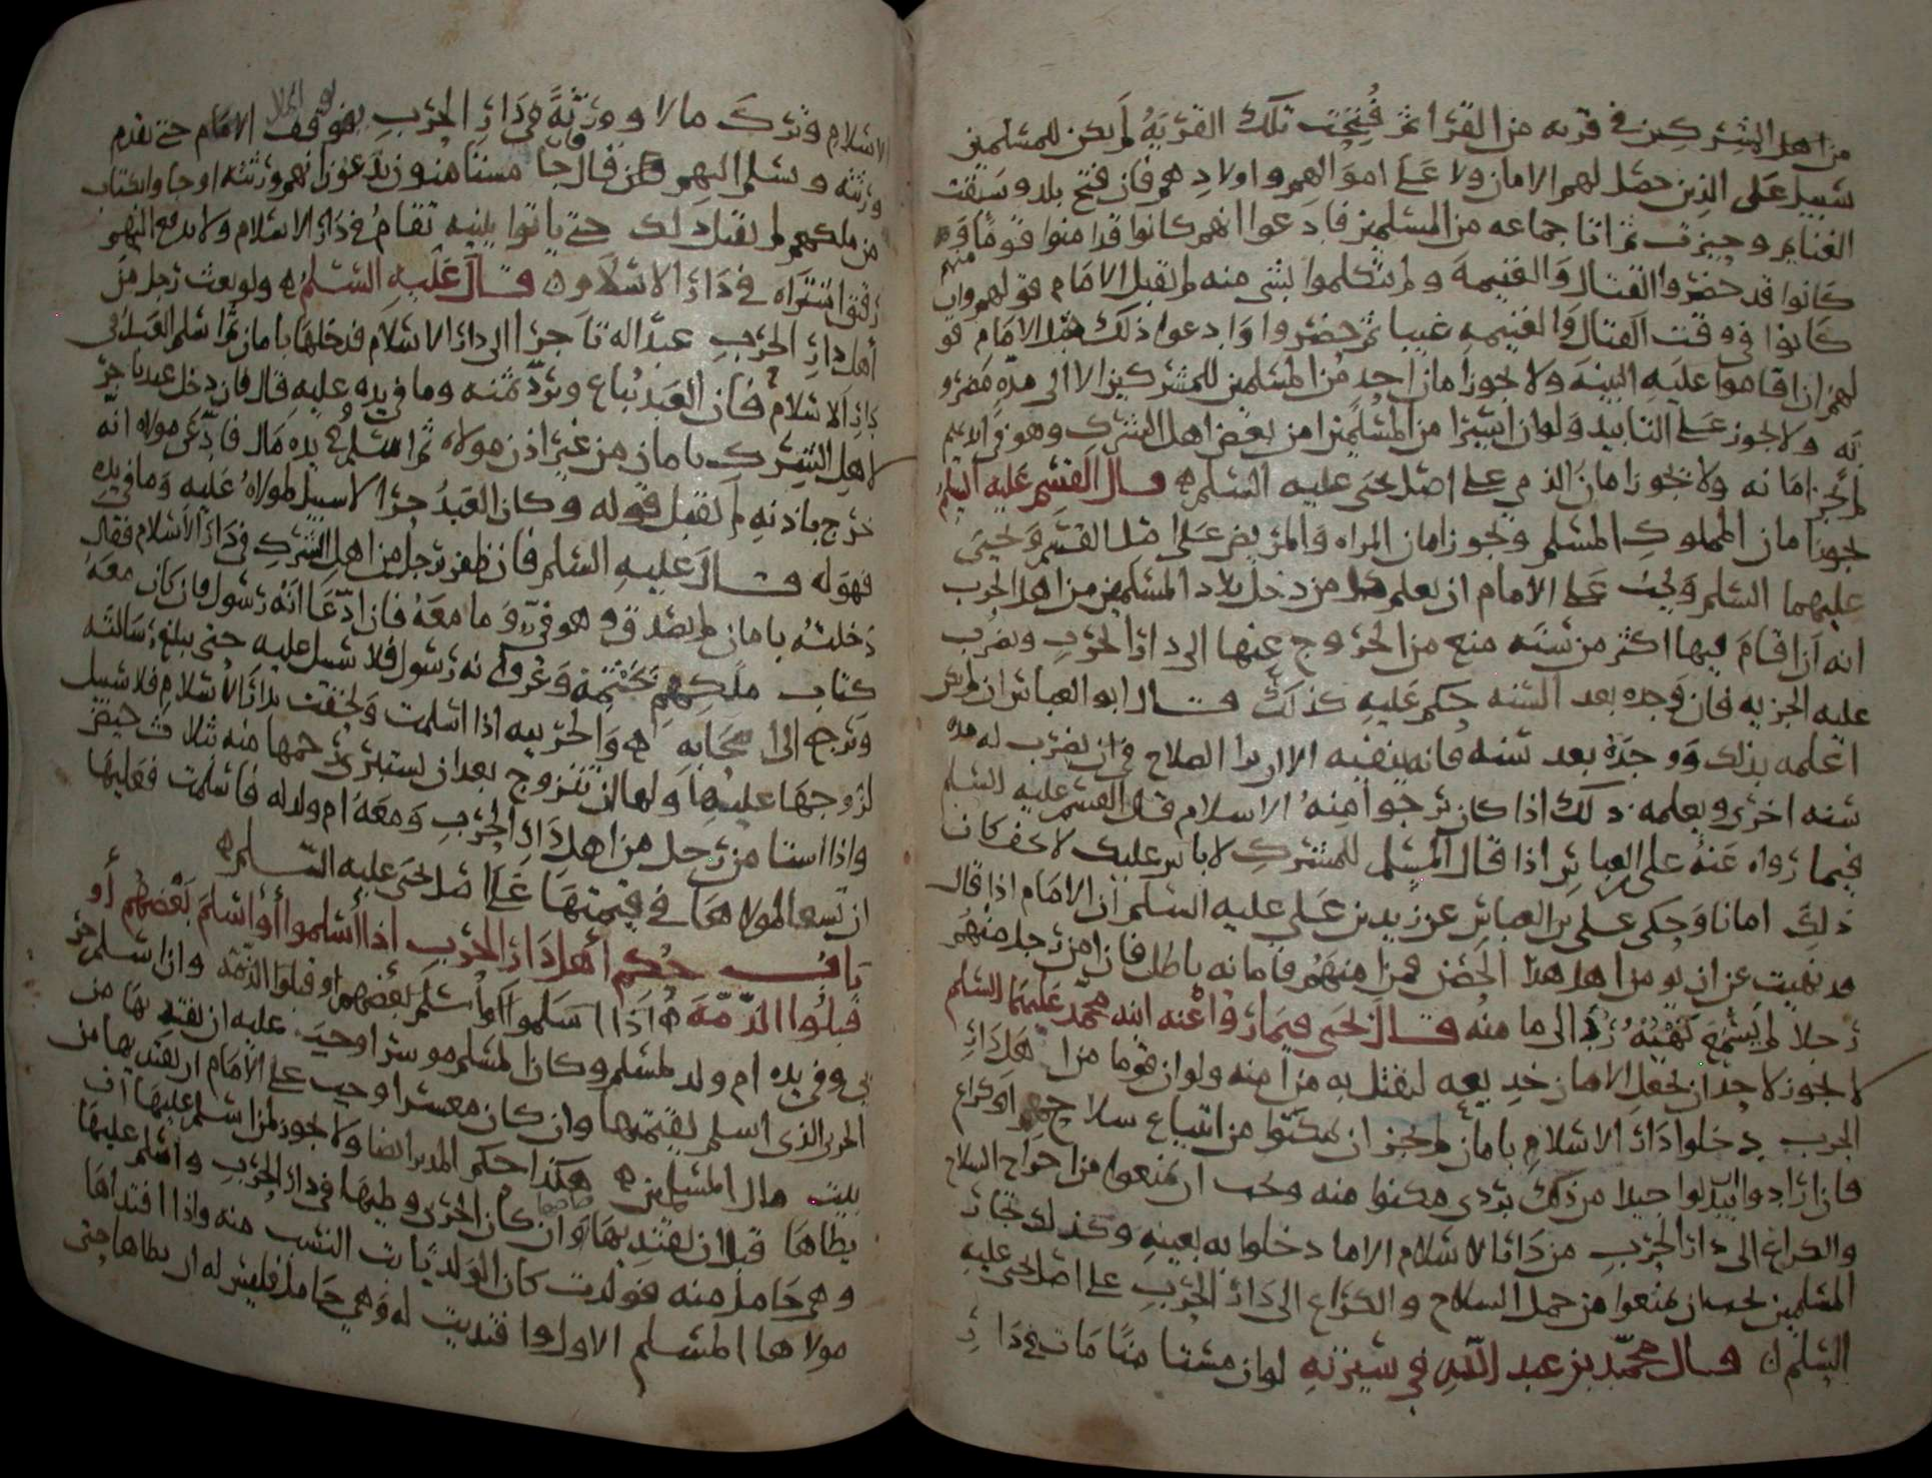 من اهل الشرك في قريه من القرا ثم فُتِحَت تلك القرْيَةُ لم يكن للمسلمين
سبيل عَلى الذين حصل لهم الامان ولا عَلى اموالهم واولادهم فان فتح بلد وسبقت
الغنايم وحيزت ثم اتا جماعه من المسلمين فادعوا انهم كانوا قد امنوا قوما منهم
كانوا قد حضروا القتال والغنيمة ولم يتكلموا بشي منه لم يقبل الامام قولهم وان
كانوا في وقت القتال والغنيمه غيبا ثم حضروا وادعوا ذلك قبل الامام قو
لهم ان اقاموا عليه البينة ولا يجوز امان احد من المسلمين للمشركين الا الى مدّه مضرو
به ولا يجوز على التابيد ولو ان اسيرا من المسلمين امن بعض اهل الشرك وهو في ايديهم
لم يجز امانه ولا يجوز امان الذمي على اصل يحيى عليه السلم قال القسم عليه السلم
يجوز امان المملوك المسلم ويجوز امان المراه والمريض على اصل القسم ويحيى
عليهما السلم ويجب على الامام ان يعلم كل من دخل بلاد المسلمين من اهل الحرب
انه ان اقام فيها اكثر من سَنَه منع من الخروج عنها الى دار الحرب وضرب
عليه الجزيه فان وجده بعد السنه حكم عليه كذلك قال ابو العباس ان لم يكن
اعلمه بذلك ووجدَهُ بعد سنه فانه ينفيه الا ان يرا الصلاح في ان يضرب له مده
سنه اخرى ويعلمه ذلك اذا كان يرجوا منه الاسلام قال القسم عليه السلم
فيما رواه عَنهُ على بن العباس اذا قال المسلم للمشرك لا باس عليك لا تخف كان
ذلك امانا وحكى على بن العباس عن زيد بن عَلي عليه السلم ان الامام اذا قال
قد نهيت عن ان يومن اهل هذا الحصن فمن امنهم فامانه باطل فان امن رجل منهم
رجلا لم يسمع نَهْيَهُ رُدَّ الى ما منه قال يحيى فيما رَواْ عنه ابنه محمّد عليهما السلم
لا يجوز لاحد ان يجعل الامان خديعه ليقتل به من امنه ولو ان قوما من اهل دار
الحرب دخلوا دار الاسلام بامان لم يجز ان يمكنوا من ابتياع سلاح او كراع
فان ارادوا ان يبدلوا جيدا من ذلك بردى مكنوا منه ويجب ان يمنعوا من اخراج السلاح
والكراع الى دار الحرب من دار الاسلام الا ما دخلوا به بعينه وكذلك تجار
المسلمين يجب ان يمنعوا من حمل السلاح والكراع الى دار الحرب على اصل يحيى عليه
السلم قال محمّد بن عبد اللّٰه في سيرته لو ان مستا منًا مات في دار
الاسلام وترك مالا وورثةً في دَار الحرب يوقف الامام حتى يقدم
ورثته ويسلم اليهم فان جا مستامنون يدعون انهم ورثته او جاوا بكتاب
من ملكهم لم يقبل ذلك حتى ياتوا ببينه تقامُ في دار الاسلام ولا يدفع اليهم
رقيق اشتراه في دار الاسلام قال عليه السلم ولو بعث رجل من
أهل دار الحرب عبدًا له تاجرا الى دار الاسلام فدخلها بامان ثم اسلم العبد في
دار الاسلام فان العَبد يُباع وترد ثمنه وما في يده عليه قال فان دخل عبد تاجر
لاهل الشرك بامان من غير اذن مولاه ثم اسلم وفي يده مال فادعى مولاه انه
خرج باذنه لم يُقبل قوله وكان العَبدُ حرّا لا سبيل لمولاهُ عليه وما في يده
فهو له قال عليه السلم فان ظفر برجل من اهل الشرك في دار الاسلام فقال
دخلتُه بامان لم يصدق وهو فيء وما معَهُ فان ادّعا انّه رسول فان كان معَهُ
كتاب ملكهم بختمه وعرف انه رسول فلا سبيل عليه حتى يبلغ رسالته
ويرجع الى اصحابه والحربيه اذا اسلمت ولحقت بدار الاسلام فلا سبيل
لزوجها عليها ولها ان تتزوج بعد ان يستبرى رحمها منه بثلاث حيض
واذا استامن رجل من اهل دار الحرب ومعه ام ولد له فاسلمت فعليها
ان تسعا لمولاها في قيمتها عَلى اصل يحيى عليه السّلم
بَاب حكم أهل دَار الحرب اذا أسلموا أو أسلمَ بَعْضُهُم أو
قبلوُا الذّمّةَ اذَا اسلموا أو أسلم بعضهم او قبلوا الذمّة وان اسلم حر
بي وفي يده ام ولد لمسلم وكان المسلم موسرا وجب عليه ان يفتديها من
الحربي الذى اسلم بقيمتها وان كان معسرا وجب على الامام ان يفتديها من
بيت مال المسلمين هكذا حكم المدبر ايضا ولا يجوز لمن اسلم عليها ان
يطاها قبل ان يفتديها وان كان الحربي وطيها في دار الحرب واسلم عليها
وهى حامل منه فولدت كان الولد ثابت النسب منه واذا افتداها
مولاها المسلم الاول وافتديت له وهي حامل فليس له ان يطاها حتى